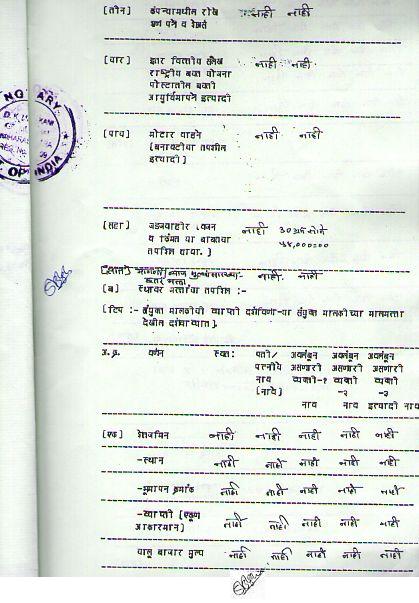 [तीन] कंपन्यामधील रोखे नाही नाही
व शेअर्स
[चार] इतर वित्तीय संलेख नाही नाही
राष्ट्रीय बचत योजना
पोस्टातील बचती
आयुर्विमापत्रे इत्यादी
[पाच] मोटार वाहने नाही नाही
[बनावटीचा तपशील
इत्यादी]
[सहा] जडजवाहीर [वजन नाही ३० ग्रॅम सोने
व किंमत या बाबतचा
तपशिल द्यावा.]
[सात] नाही नाही
[ब] स्थावर मत्तांचा तपशिल :-
[टिप :- संयुक्त मालकीची व्याप्ती दर्शविणा-या संयुक्त मालकीच्या मालमत्ता
देखील दर्शवाव्यात].
अ.क्र. वर्णन स्वतः पती/ अवलंबून अवलंबून अवलंबून
पत्नीचे असणारी असणारी असणारी
नाव व्यक्ती-१ व्यक्ती व्यक्ती
[नावे] -२ -३
नाव नाव इत्यादी नाव
[एक] शेतजमिन नाही नाही नाही नाही नाही
-स्थान नाही नाही नाही नाही नाही
-भूमापन क्रमांक नाही नाही नाही नाही नाही
-व्याप्ती [एकूण नाही नाही नाही नाही नाही
आकारमान]
चालू बाजार मुल्य नाही नाही नाही नाही नाही
NOTARY
OF INDIA